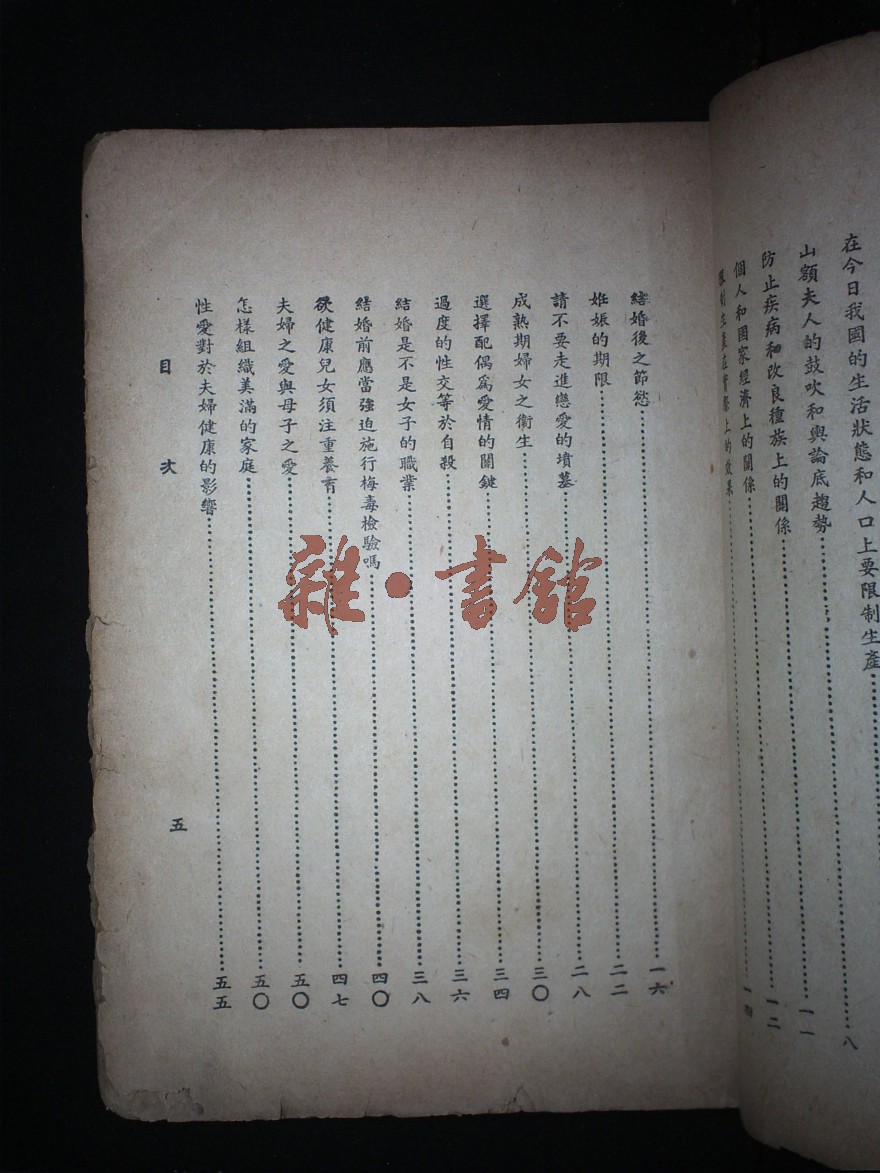 在今日我國的生活狀態和人口上要限制生產……八
山額夫人的鼓吹和輿論底趨勢……一一
防止疾病和改良種族上的關係……一二
個人和國家經濟上的關係……一四
限制生產在實際上的效果……
結婚後之節慾……一六
姙娠的期限……二二
請不要走進戀愛的墳墓……二八
成熟期婦女之衞生……三〇
選擇配偶爲愛情的關鍵……三四
過度的性交等於自殺……三六
結婚是不是女子的職業……三八
結婚前應當強迫施行梅毒檢驗嗎……四〇
欲健康兒女須注重養育……四七
夫婦之愛與母子之愛……五〇
怎樣組織美滿的家庭……五〇
性愛對於夫婦健康的影響……五五
目次
五
雜·書館